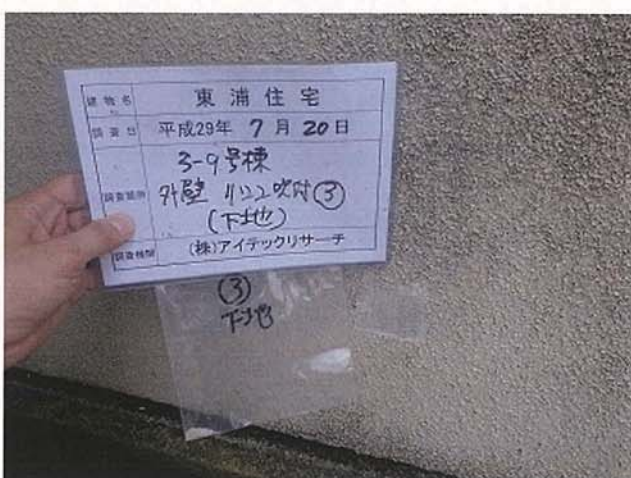 建物名 東浦住宅
調査日 平成29年 7月20日
3-9号棟
調査箇所 外壁 リシン吹付③
(下地)
調査機関 (株)アイテックリサーチ
③
下地